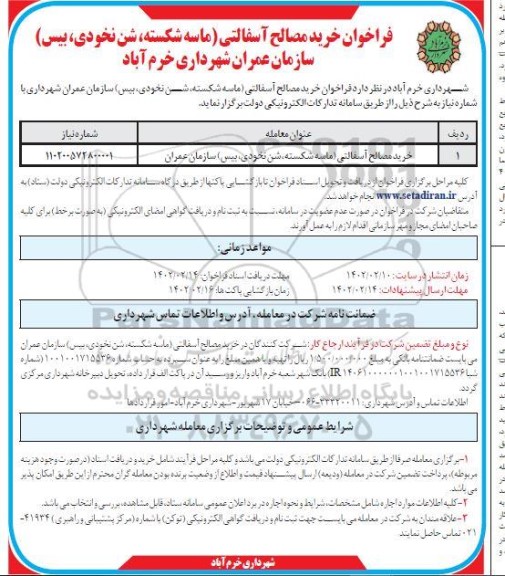 فراخوان خرید مصالح آسفالتی (ماسه شکسته، شن نخودی، بیس)
سازمان عمران شهرداری خرم آباد
شهرداری خرم آباد در نظر دارد فراخوان خرید مصالح آسفالتی (ماسه شکسته، شن نخودی، بیس) سازمان عمران شهرداری با
شماره نیاز به شرح ذیل را از طریق سامانه تدارکات الکترونیکی دولت برگزار نماید.
ردیف عنوان معامله شماره نیاز
۱ خرید مصالح آسفالتی (ماسه شکسته، شن نخودی، بیس) سازمان عمران ۱۱۰۲۰۰۵۷۲۸۰۰۰۰۱
کلیه مراحل برگزاری فراخوان از دریافت و تحویل اسناد فراخوان تا بازگشایی پاکتها از طریق درگاه سامانه تدارکات الکترونیکی دولت (ستاد) به
آدرس www.setadiran.ir انجام خواهد شد.
متقاضیان شرکت در فراخوان در صورت عدم عضویت در سامانه، نسبت به ثبت نام و دریافت گواهی امضای الکترونیکی (به صورت برخط) برای کلیه
صاحبان امضای مجاز و مهر سازمانی اقدام لازم را به عمل آورند.
مواعد زمانی:
زمان انتشار در سایت: ۱۴۰۲/۰۲/۱۰ مهلت دریافت اسناد فراخوان: ۱۴۰۲/۰۲/۱۴
مهلت ارسال پیشنهادات: ۱۴۰۲/۰۲/۱۴ زمان بازگشایی پاکت ها: ۱۴۰۲/۰۲/۱۶
ضمانت نامه شرکت در معامله، آدرس و اطلاعات تماس شهرداری
نوع و مبلغ تضمین شرکت در فرآیند ارجاع کار: شرکت کنندگان در خرید مصالح آسفالتی (ماسه شکسته، شن نخودی، بیس) سازمان عمران
می بایست ضمانتنامه بانکی به مبلغ ریال را تهیه و یا همین مبلغ را به عنوان سپرده به حساب شماره ۱۰۰۱۰۰۱۷۱۵۵۳۶ (شماره
شبا بانک شهر شعبه خرم آباد واریز و رسید آن در پاکت الف قرار داده، تحویل دبیرخانه شهرداری مرکزی
گردد.
اطلاعات تماس و آدرس شهرداری: ۳۳۲۲۰۰۱۱-۰۶۶ خیابان ۱۷ شهریور-شهرداری خرم آباد-امور قراردادها
شرایط عمومی و توضیحات برگزاری معامله شهرداری
۱-برگزاری معامله صرفا از طریق سامانه تدارکات الکترونیکی دولت می باشد و کلیه مراحل فرآیند شامل خرید و دریافت اسناد (در صورت وجود هزینه
مربوطه)، پرداخت تضمین شرکت در معامله (ودیعه) ارسال پیشنهاد قیمت و اطلاع از وضعیت برنده بودن معامله گران محترم از این طریق امکان پذیر
می باشد.
۲-کلیه اطلاعات موارد اجاره شامل مشخصات، شرایط و نحوه اجاره در برد اعلان عمومی سامانه ستاد، قابل مشاهده، بررسی و انتخاب می باشد.
۳-علاقه مندان به شرکت در معامله می بایست جهت ثبت نام و دریافت گواهی الکترونیکی (توکن) با شماره (مرکز پشتیبانی و راهبری) ۴۱۹۳۴-
۰۲۱ تماس حاصل نمایند.
شهرداری خرم آباد